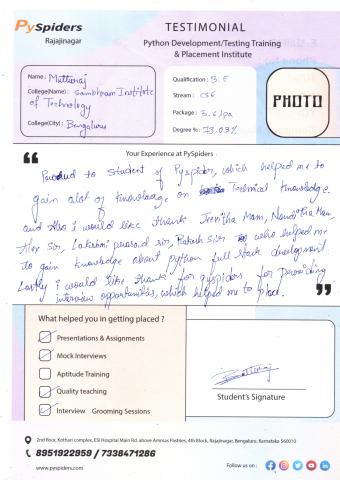 PySpiders
Rajajinagar
TESTIMONIAL
Python Development/Testing Training
& Placement Institute
Name : Mutturaj
College(Name) : Sambhram Institute
of Technology
College(City) : Bengaluru
Qualification : B.E
Stream : CSE
Package : 3.6 lpa
Degree % : 73.03%
PHOTO
Your Experience at PySpiders
Proud to student of Pyspider, which helped me to
gain alot of knowladge on Technical knowledge.
and Also i would like thank Mam, Mam
Sir, Lakshmi prasad sir, Rakesh Sir who helped me
to gain knowledge about python full stack development
Lastly i would like thank for qspiders for providing
interview opportunities, which helped me to place.
What helped you in getting placed ?
Presentations & Assignments
Mock Interviews
Aptitude Training
Quality teaching
Interview Grooming Sessions
Student's Signature
2nd floor, Kothari complex, ESI Hospital Main Rd, above Ammas Pastries, 4th Block, Rajajinagar, Bengaluru, Karnataka 560010
8951922959 / 7338471286
www.pyspiders.com
Follow us on :